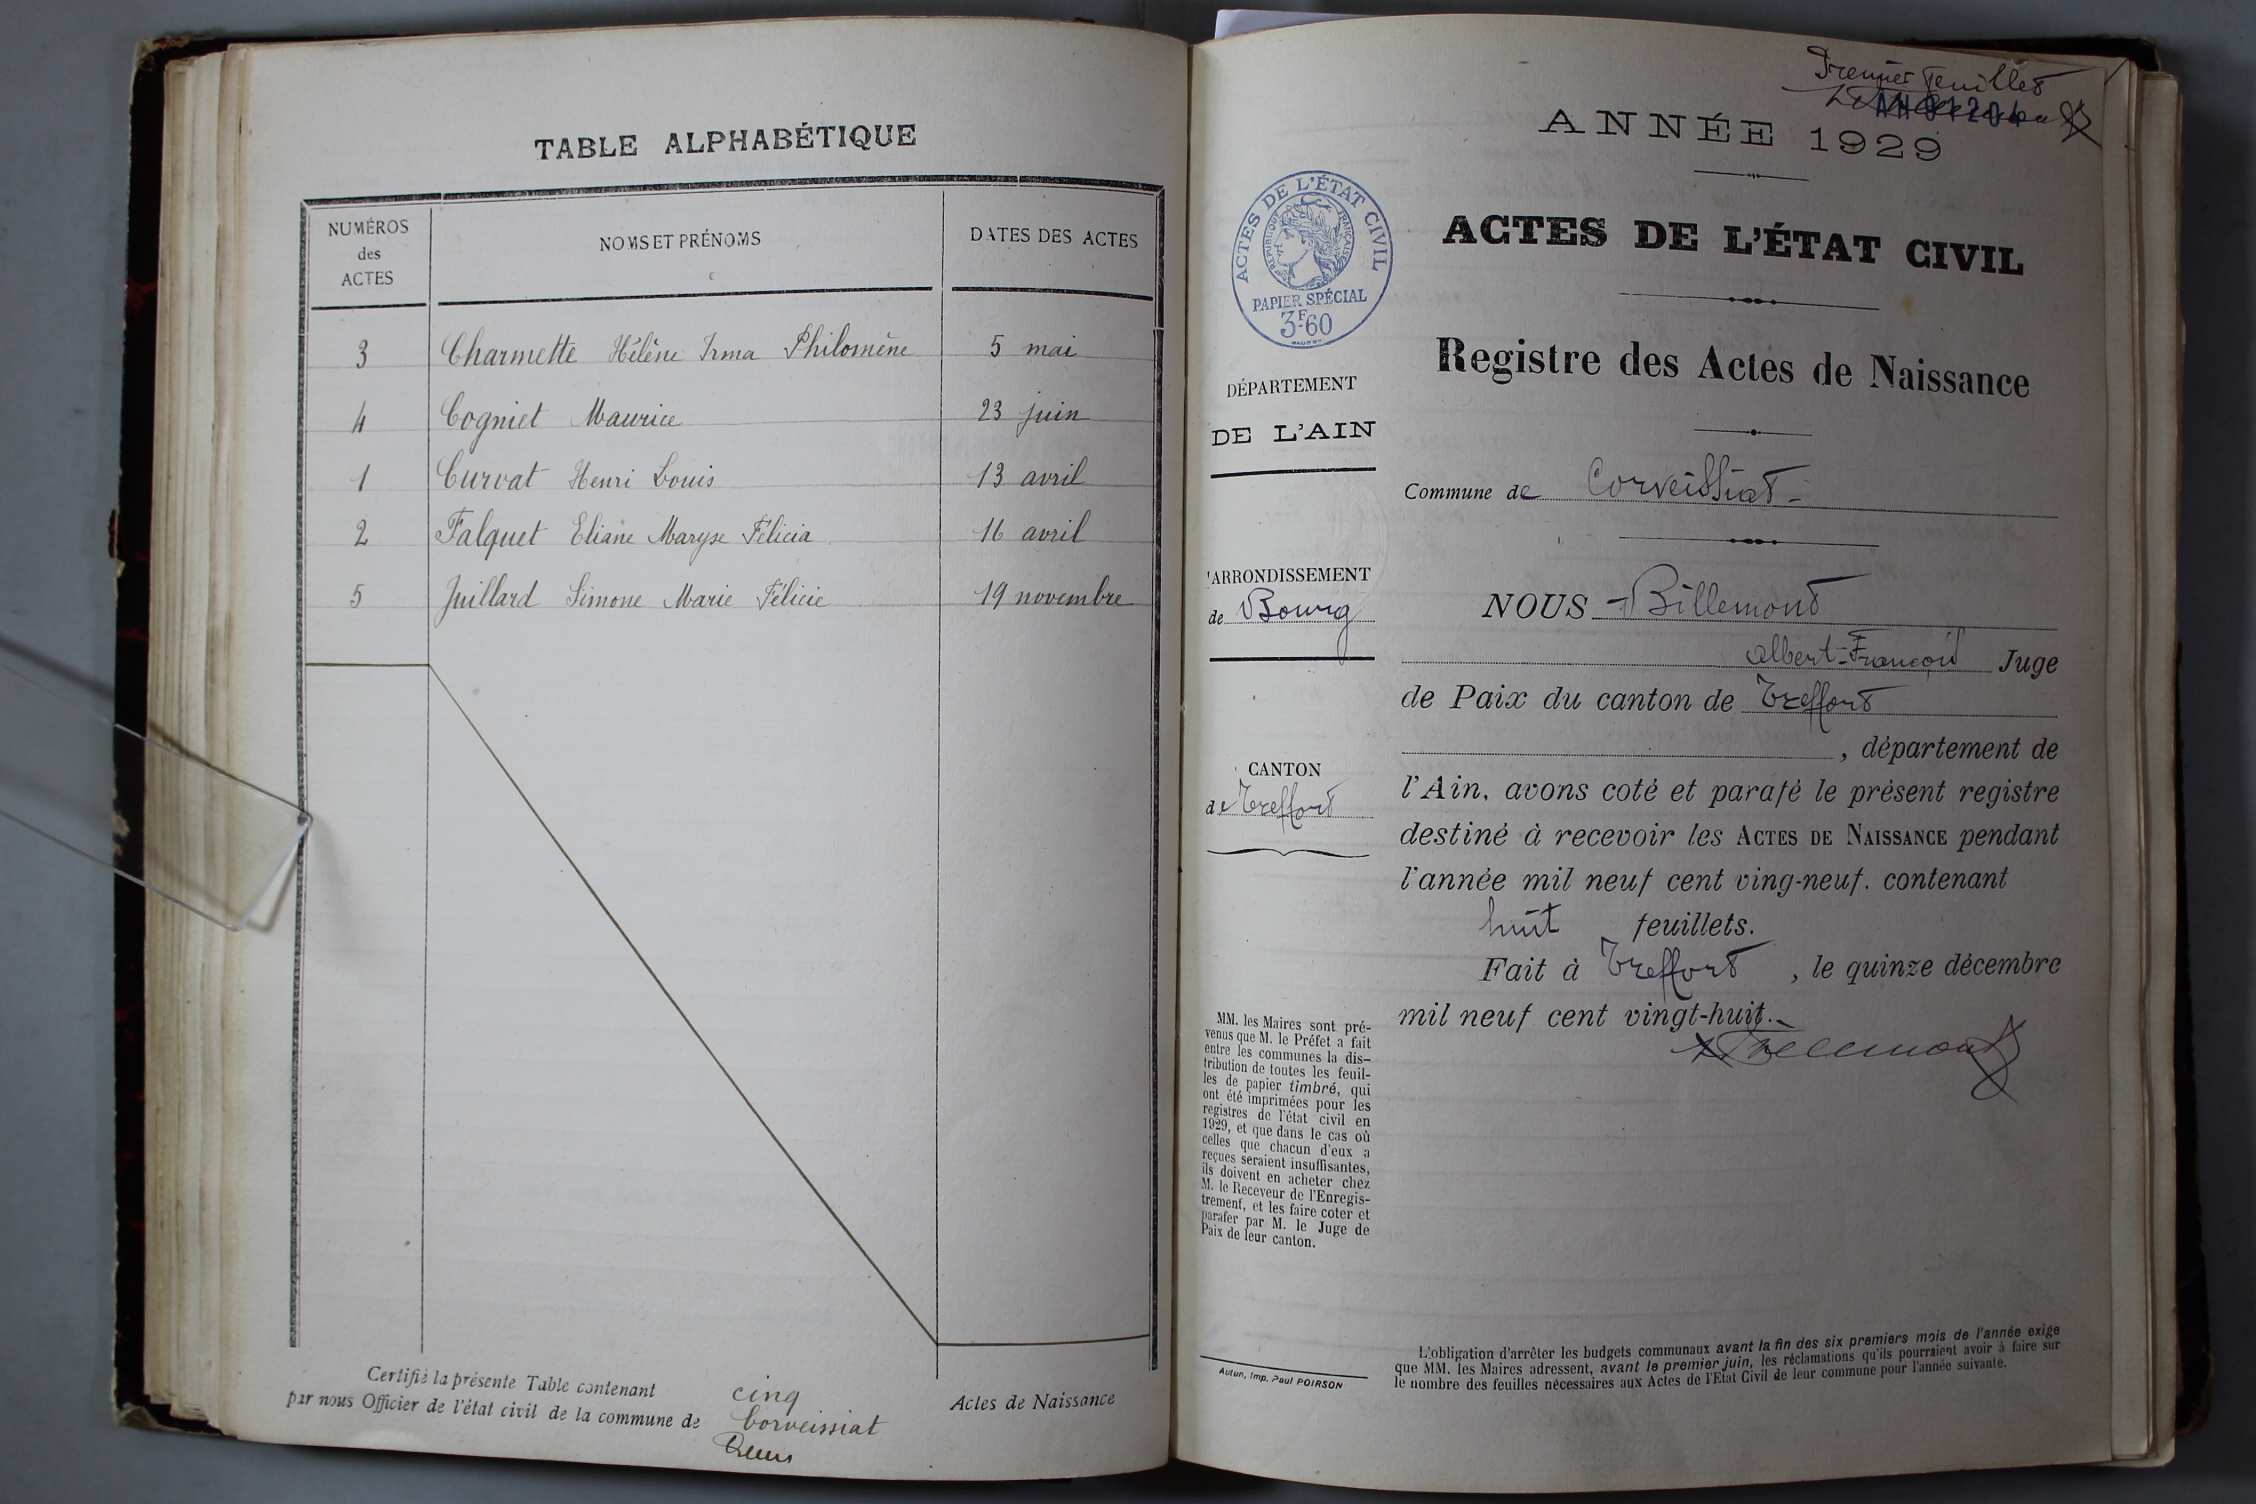 TABLE ALPHABÉTIQUE
NUMÉROS
des
ACTES
NOMS ET PRÉNOMS
DATES DES ACTES
3 Charmette Hélène Irma Philomène 5 mai
4 Cogniet Maurice 23 juin
1 Curvat Henri Louis 13 avril
2 Falquet Eliane Maryse Félicia 16 avril
5 Juillard Simone Marie Félicie 19 novembre
Certifié la présente Table contenant cinq Actes de Naissance
par nous Officier de l'état civil de la commune de Corveissiat
Premier feuillet
ANNÉE 1929
ACTES DE L'ÉTAT CIVIL
RÉPUBLIQUE FRANÇAISE
PAPIER SPÉCIAL
3F60
ACTES DE L'ÉTAT CIVIL
Registre des Actes de Naissance
DÉPARTEMENT
DE L'AIN
Commune de Corveissiat
ARRONDISSEMENT
de Bourg
CANTON
de Treffort
NOUS Billemont
Albert-François Juge
de Paix du canton de Treffort
, département de
l'Ain, avons coté et parafé le présent registre
destiné à recevoir les ACTES DE NAISSANCE pendant
l'année mil neuf cent ving-neuf. contenant
huit feuillets.
Fait à Treffort, le quinze décembre
mil neuf cent vingt-huit.
Billemont
MM. les Maires sont pré-
venus que M. le Préfet a fait
entre les communes la dis-
tribution de toutes les feuil-
les de papier timbré, qui
ont été imprimées pour les
registres de l'état civil en
1929, et que dans le cas où
celles que chacun d'eux a
reçues seraient insuffisantes,
ils doivent en acheter chez
M. le Receveur de l'Enregis-
trement, et les faire coter et
parafer par M. le Juge de
Paix de leur canton.
Autun, Imp. Paul POIRSON
L'obligation d'arrêter les budgets communaux avant la fin des six premiers mois de l'année exige
que MM. les Maires adressent, avant le premier juin, les réclamations qu'ils pourraient avoir à faire sur
le nombre des feuilles nécessaires aux Actes de l'Etat Civil de leur commune pour l'année suivante.